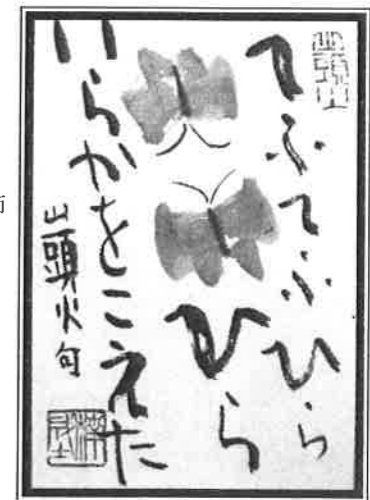 てふてふひら
ひら
いらかをこえた
山頭火句